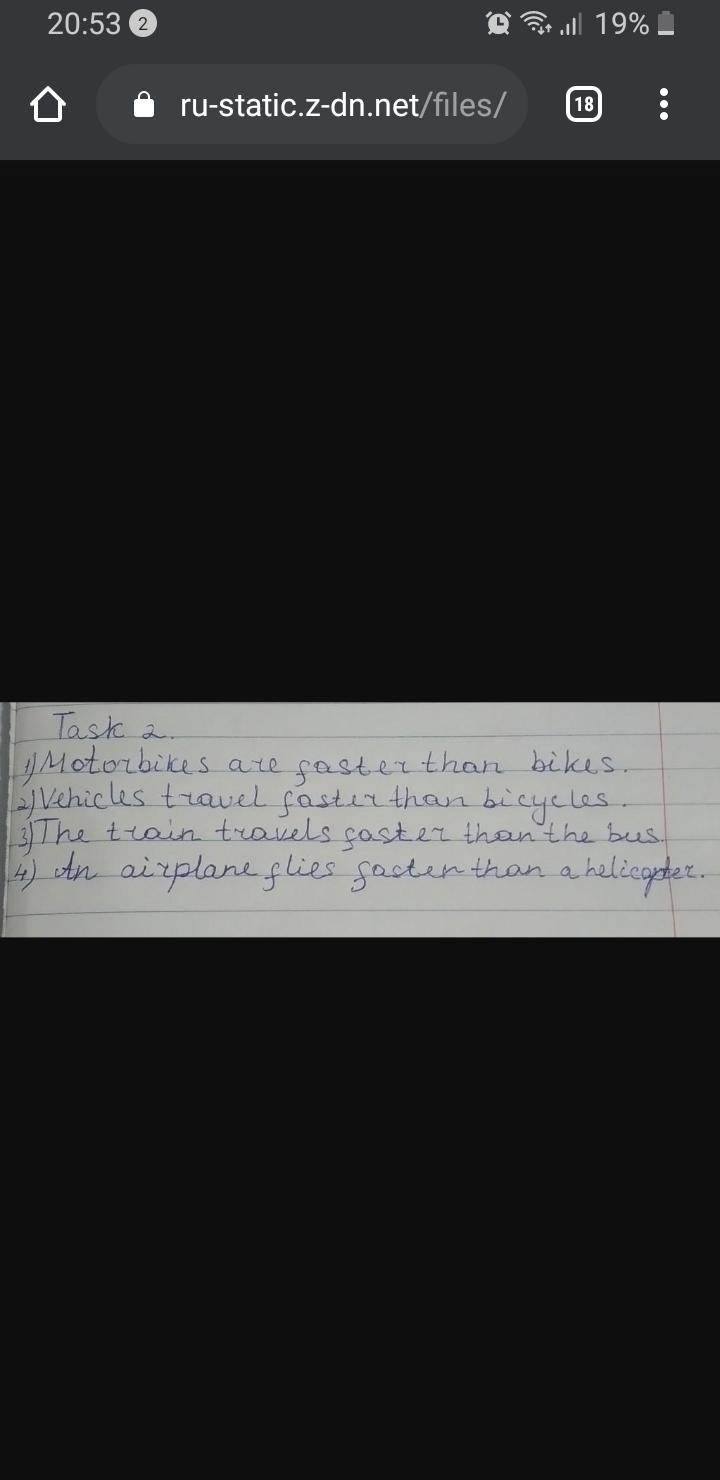 20:53 2 19%
ru-static.z-dn.net/files/ 18
Task 2.
1) Motorbikes are faster than bikes.
2) Vehicles travel faster than bicycles.
3) The train travels faster than the bus.
4) An airplane flies faster than a helicopter.